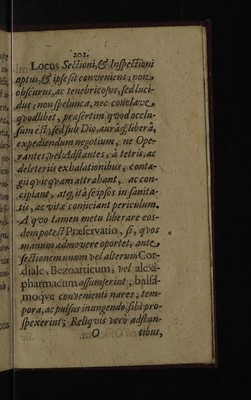 202.
Locus Sectioni, & Inspectioni
aptus, & ipse sit conveniens; non
obscurus, ac tenebricosus, sed luci-
dus; non spelunca, nec conclave
quodlibet, præsertim quod occlu-
sum est; sed sub Dio, aurâq; liberâ,
expediendum negotium, ne Ope-
rantes, vel Adstantes, à tetris, ac
deleteriis exhalationibus, conta-
gii quicquam attrahant, ac con-
cipiant, atq; ità se ipsos in sanita-
tis, ac vitæ conjiciant periculum.
A qvo tamen metu liberare eos-
dem potest Præservatio, si, qvos
manum admovere oportet, ante
sectionem unum vel alterum Cor-
diale, Bezoarticum, vel alexi-
pharmacum assumserint, balsa-
moqve convenienti nares, tem-
pora, ac pulsus inungendo, sibi pro-
spexerint; Reliqvis verò adstan-
O tibus,